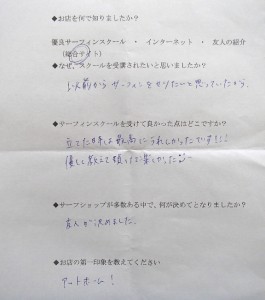 ◆お店を何で知りましたか?
優良サーフィンスクール ・ インターネット ・ 友人の紹介
(総合サイト)
◆なぜ、スクールを受講されたいと思いましたか?
以前から サーフィンをやりたいと思っていたから。
◆サーフィンスクールを受けて良かった点はどこですか?
立てた時は最高にうれしかったです!!
優しく教えて頂いて楽しかった
◆サーフショップが多数ある中で、何が決めてとなりましたか?
友人が決めました。
◆お店の第一印象を教えてください
アットホーム!